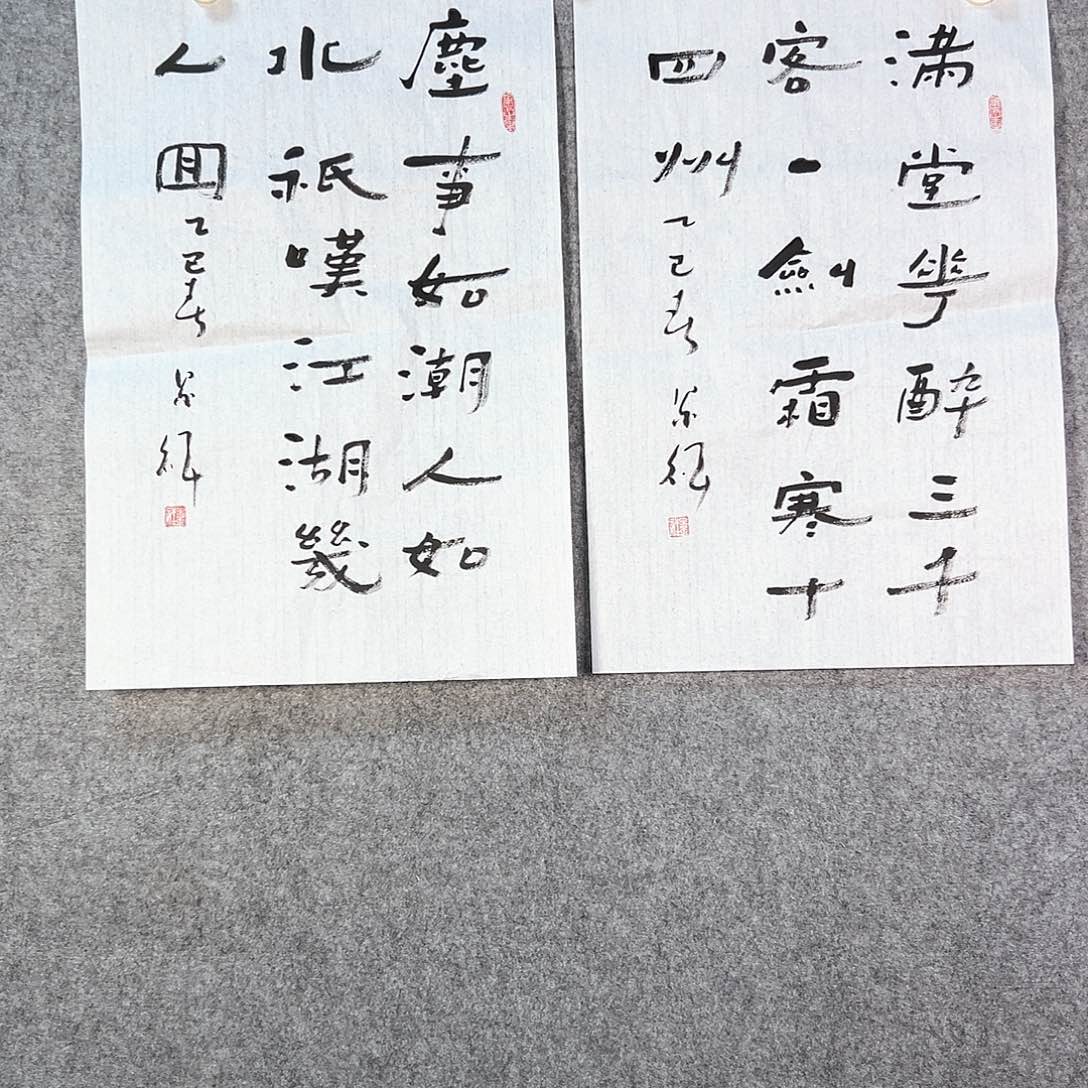 滿堂花醉三千
客一劍霜寒十
四州乙巳春
塵事如潮人如
水祇嘆江湖幾
人回乙巳春